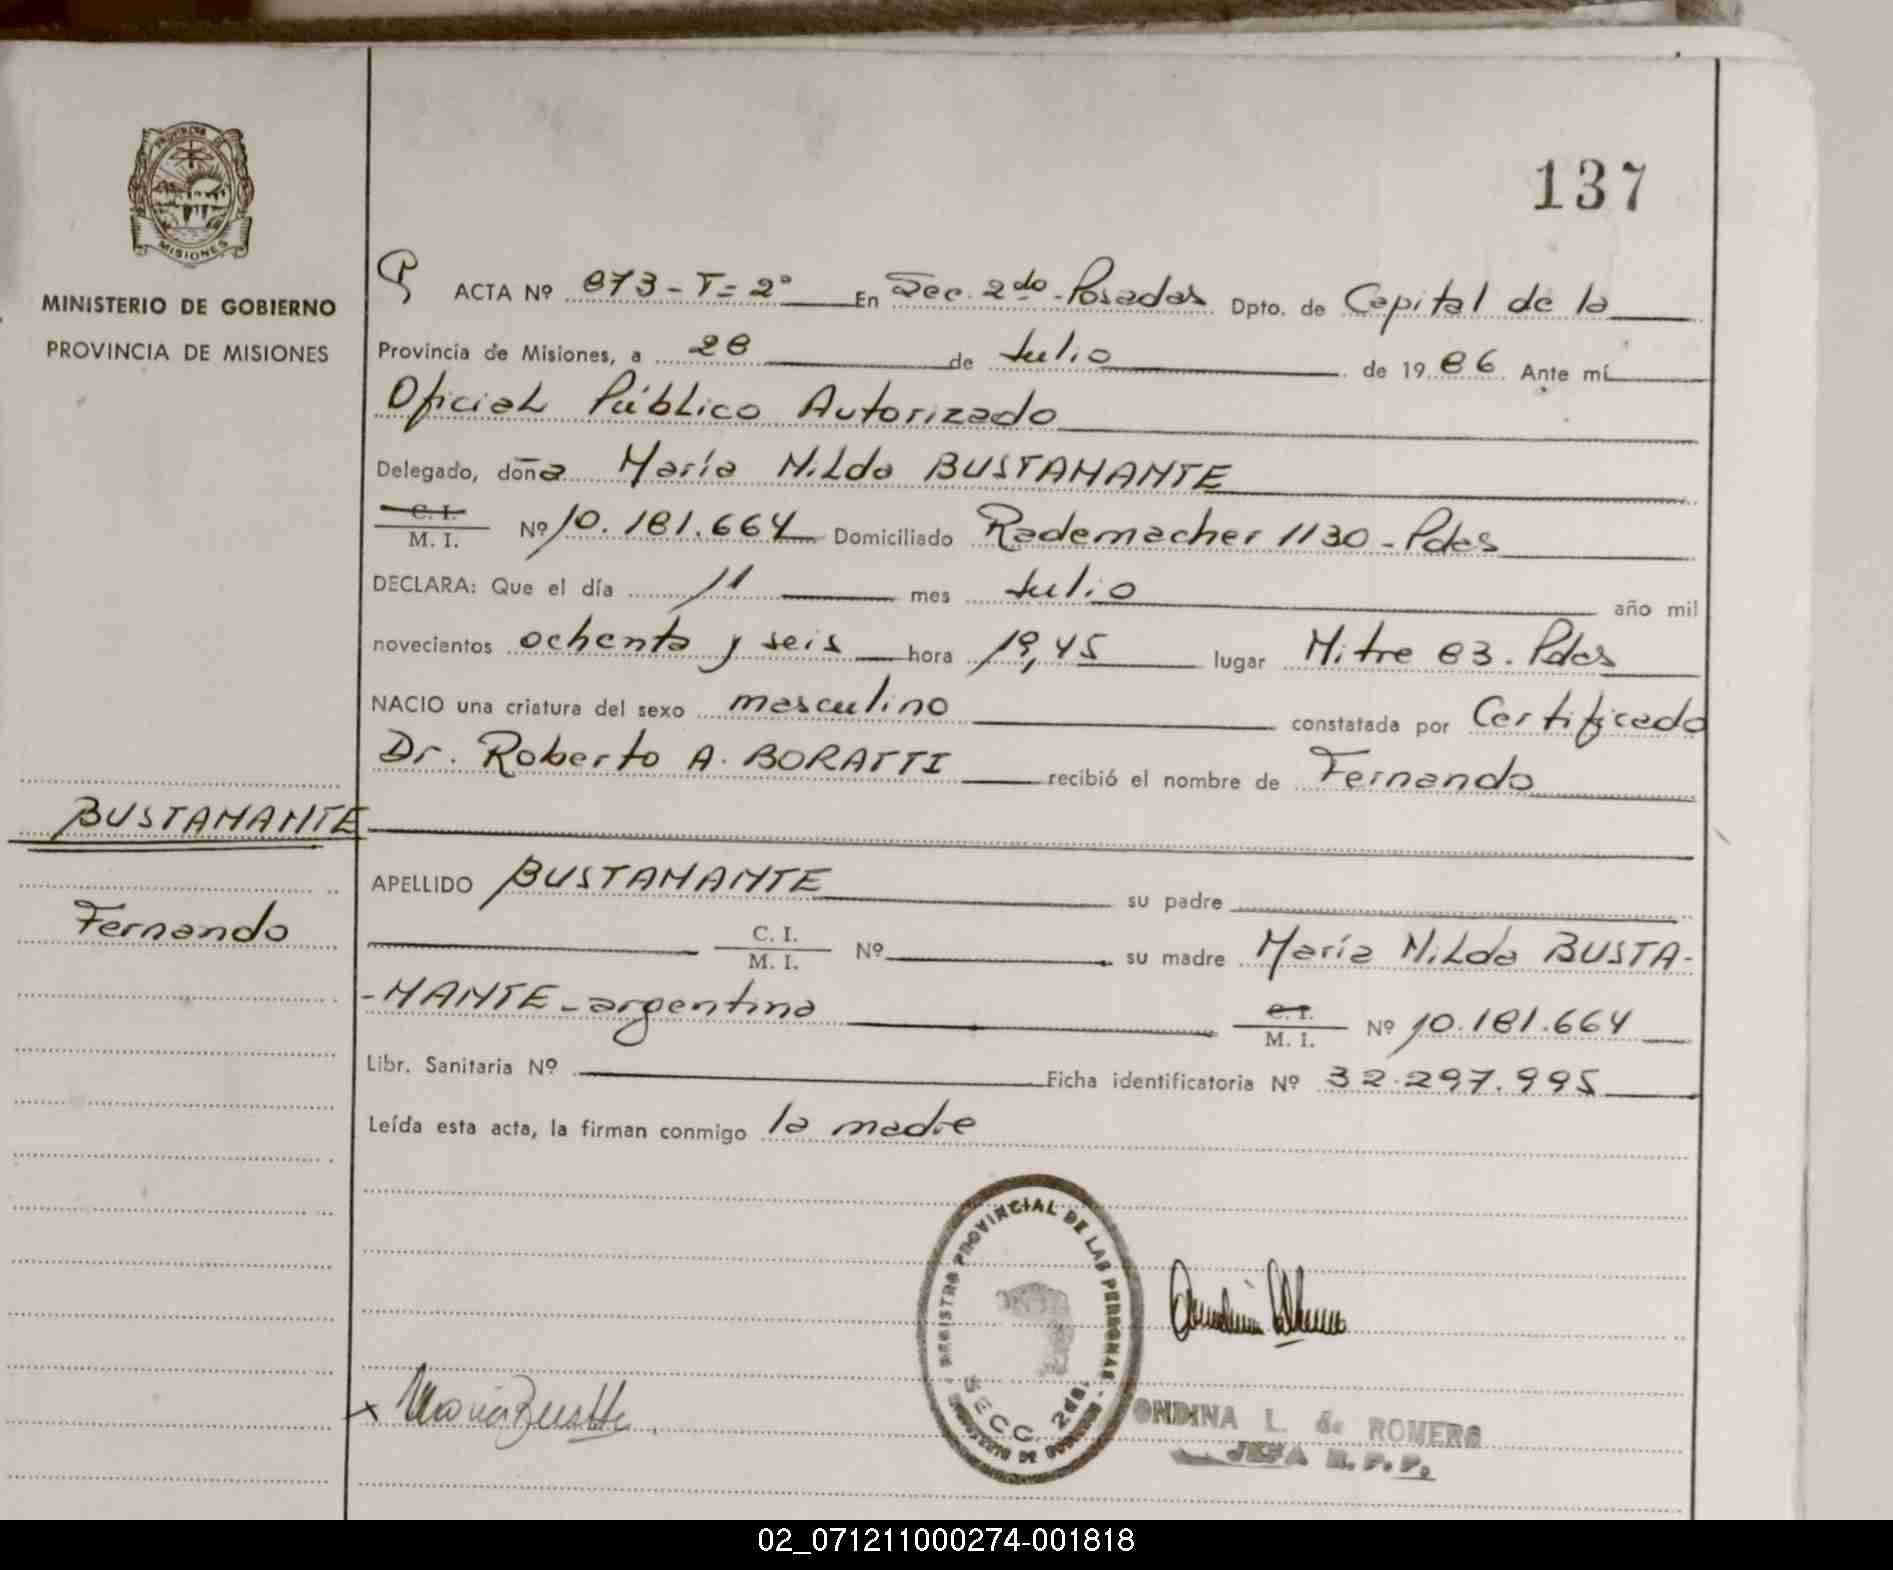 137
PROVINCIA DE
MISIONES
MINISTERIO DE GOBIERNO
PROVINCIA DE MISIONES
ACTA Nº 873 - T= 2º En Sec. 2do - Posadas Dpto. de Capital de la
Provincia de Misiones, a 28 de Julio de 1986 Ante mí
Oficial Público Autorizado
Delegado, doña María Nilda BUSTAMANTE
C. I.
M. I. Nº 10.181.664 Domiciliado Rademacher 1130 - Pdas
DECLARA: Que el día 11 mes Julio año mil
novecientos ochenta y seis hora 19,45 lugar Mitre 83. Pdas
NACIO una criatura del sexo masculino constatada por Certificado
Dr. Roberto A. BORATTI recibió el nombre de Fernando
BUSTAMANTE
APELLIDO BUSTAMANTE su padre
Fernando
C. I.
M. I. Nº su madre María Nilda BUSTA-
-MANTE - argentina C. I.
M. I. Nº 10.181.664
Libr. Sanitaria Nº Ficha identificatoria Nº 32.297.995
Leída esta acta, la firman conmigo la madre
REGISTRO PROVINCIAL DE LAS PERSONAS
SECC. 2da.
MINISTERIO DE GOBIERNO
x María
ONDINA L. de ROMERO
JEFA R. P. P.
02_071211000274-001818